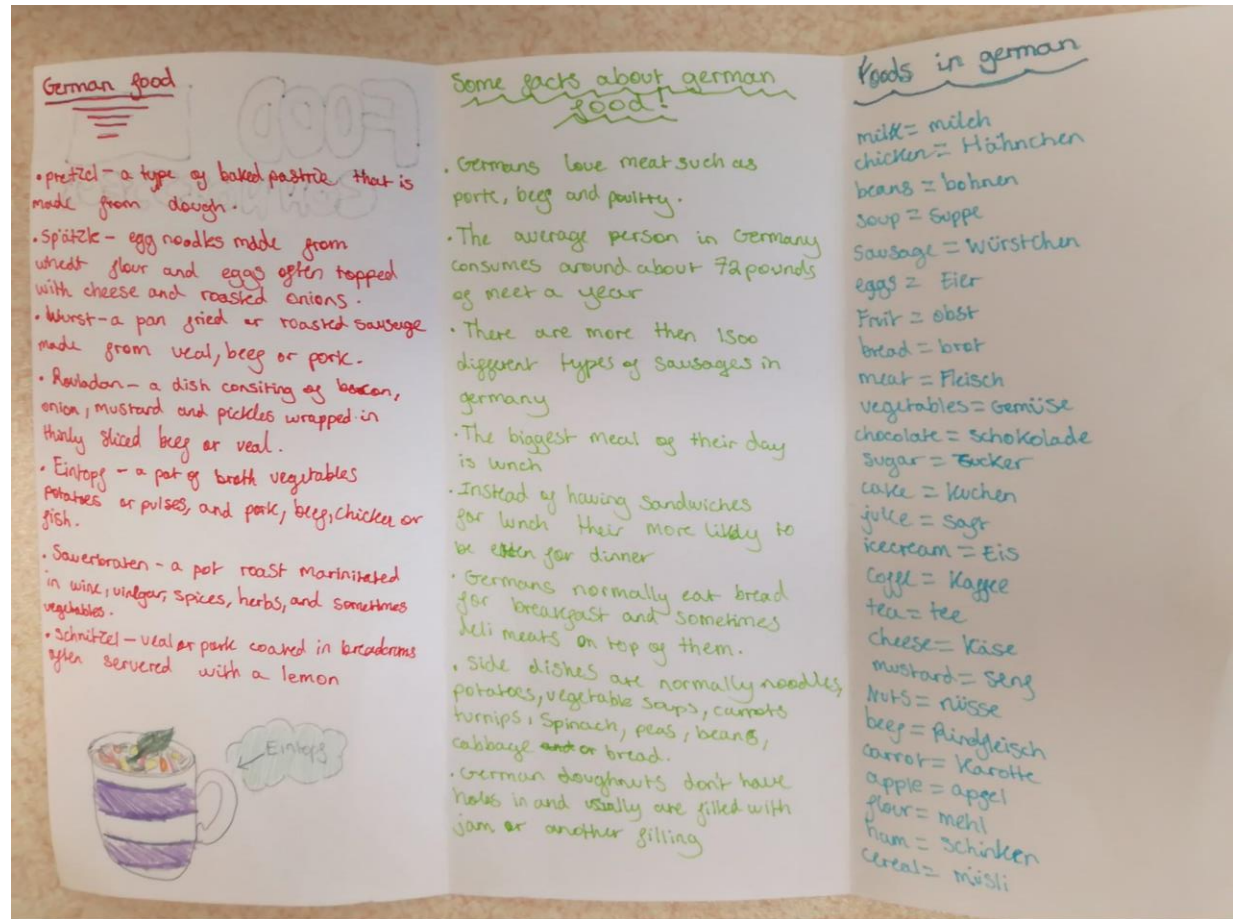 German food
• pretzel - a type of baked pastrie that is
made from dough.
• Spätzle - egg noodles made from
wheat flour and eggs often topped
with cheese and roasted onions.
• Wurst - a pan fried or roasted sausage
made from veal, beef or pork.
• Rouladan - a dish consiting of bacon,
onion, mustard and pickles wrapped in
thinly sliced beef or veal.
• Eintopf - a pot of broth vegetables
potatoes or pulses, and pork, beef, chicken or
fish.
• Sauerbraten - a pot roast marinitated
in wine, vinegar, spices, herbs, and sometimes
vegetables.
• Schnitzel - veal or pork coated in breadcrums
often servered with a lemon
Eintopf
Some facts about german
food!
• Germans love meat such as
pork, beef and poultry.
• The average person in Germany
consumes around about 72 pounds
of meet a year
• There are more then 1500
different types of sausages in
germany
• The biggest meal of their day
is lunch
• Instead of having sandwiches
for lunch their more likley to
be eaten for dinner
• Germans normally eat bread
for breakfast and sometimes
deli meats on top of them.
• Side dishes are normally noodles,
potatoes, vegetable soups, carrots
turnips, Spinach, peas, beans,
cabbage or bread.
• German doughnuts don't have
holes in and usually are filled with
jam or another filling
Foods in german
milk = milch
chicken = Hähnchen
beans = bohnen
soup = Suppe
Sausage = Würstchen
eggs = Eier
Fruit = obst
bread = brot
meat = Fleisch
vegetables = Gemüse
chocolate = schokolade
sugar = Zucker
cake = Kuchen
juice = saft
icecream = Eis
Coffe = Kaffee
tea = tee
cheese = Käse
mustard = senf
Nuts = nüsse
beef = Rindfleisch
carrot = Karotte
apple = apfel
flour = mehl
ham = schinken
cereal = müsli
FOOD